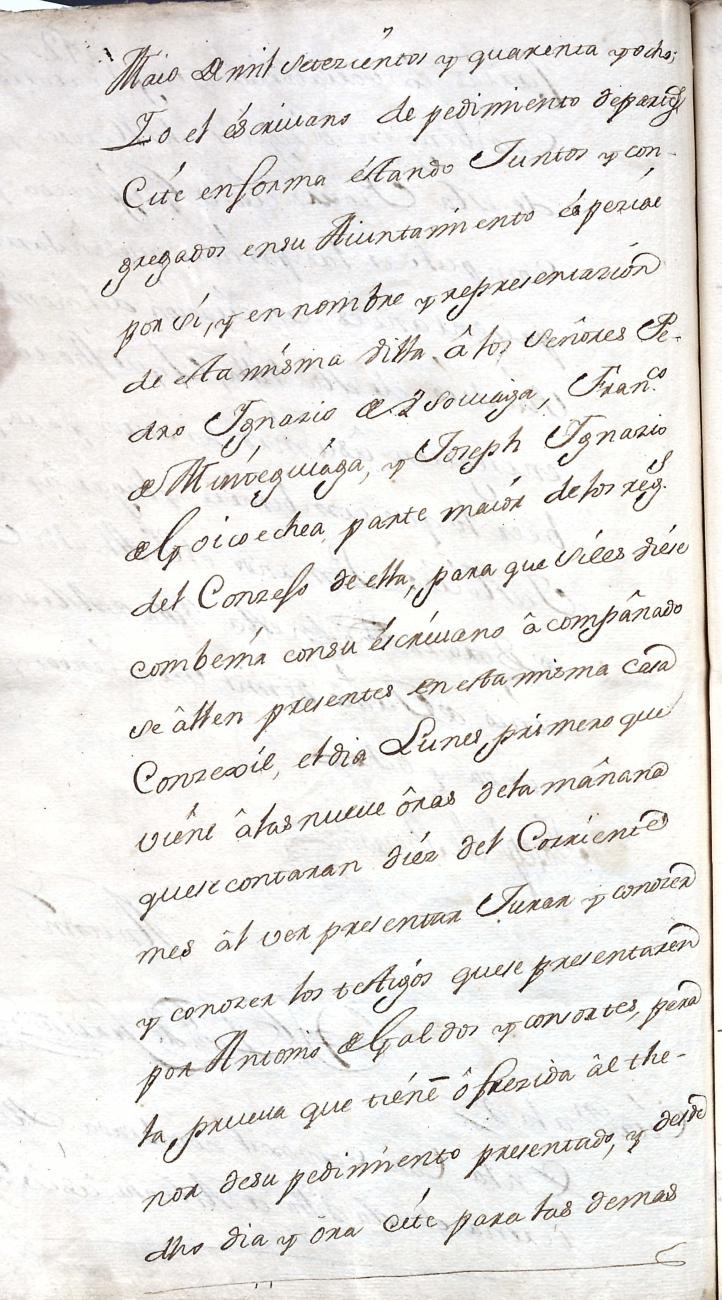 Maio de mil setezientos y quarenta y ocho;
Yo el escrivano de pedimiento de partes
Cité en forma estando Juntos y con-
gregados en su Aiuntamiento espezial
por si, y en nombre y representazion
de esta misma villa â los señores Pe-
dro Ignazio de
Fran.co
de Minteguiaga, y Joseph Ignazio
de Goicoechea, parte maior de los reg.s
del Conzejo de ella, para que si les diese
combenir con su escrivano âcompañado
se âllen presentes en esta misma casa
Conzexil, el dia Lunes primero que
viene â las nueve ôras de la mañana
que se contaran diez del Corriente
mes âl ver presentar Jurar y conozer
y conozer los testigos que se presentaren
por Antonio de Galdos y consortes, para
la prueva que tiene ôfrezida âl the-
nor de su pedimiento presentado, y desde
dho dia y ôra cité para las demas